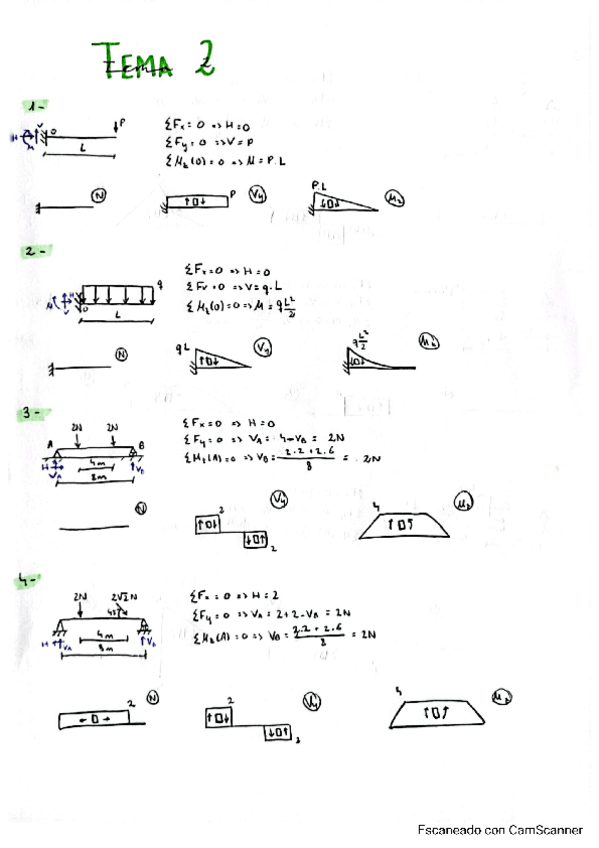 TEMA 2
1-
P
H
V
M
O
L
ΣFx = 0 => H = 0
ΣFy = 0 => V = P
ΣMz(0) = 0 => M = P.L
N
P
Vy
P.L
Mz
2-
q
H
M
V
O
L
ΣFx = 0 => H = 0
ΣFy = 0 => V = q.L
ΣMz(0) = 0 => M = q L²/2
N
qL
Vy
q L²/2
Mz
3-
2N 2N
A B
H VA 4m VB
8m
ΣFx = 0 => H = 0
ΣFy = 0 => VA = 4 - VB = 2N
ΣMz(A) = 0 => VB = 2.2 + 2.6 / 8 = 2N
N
2
Vy
2
4
Mz
4-
2N 2√2 N
45°
H VA 4m VB
8m
ΣFx = 0 => H = 2
ΣFy = 0 => VA = 2 + 2 - VB = 2N
ΣMz(A) = 0 => VB = 2.2 + 2.6 / 8 = 2N
2
N
2
Vy
4
Mz
Escaneado con CamScanner